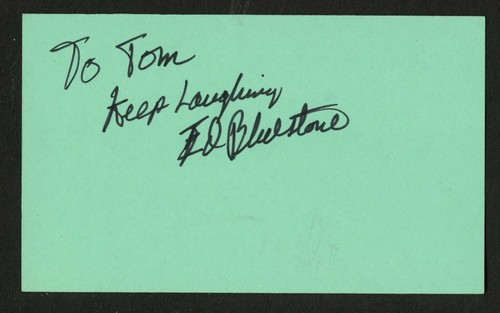 To Tom
Keep Laughing
Ed Bluestone